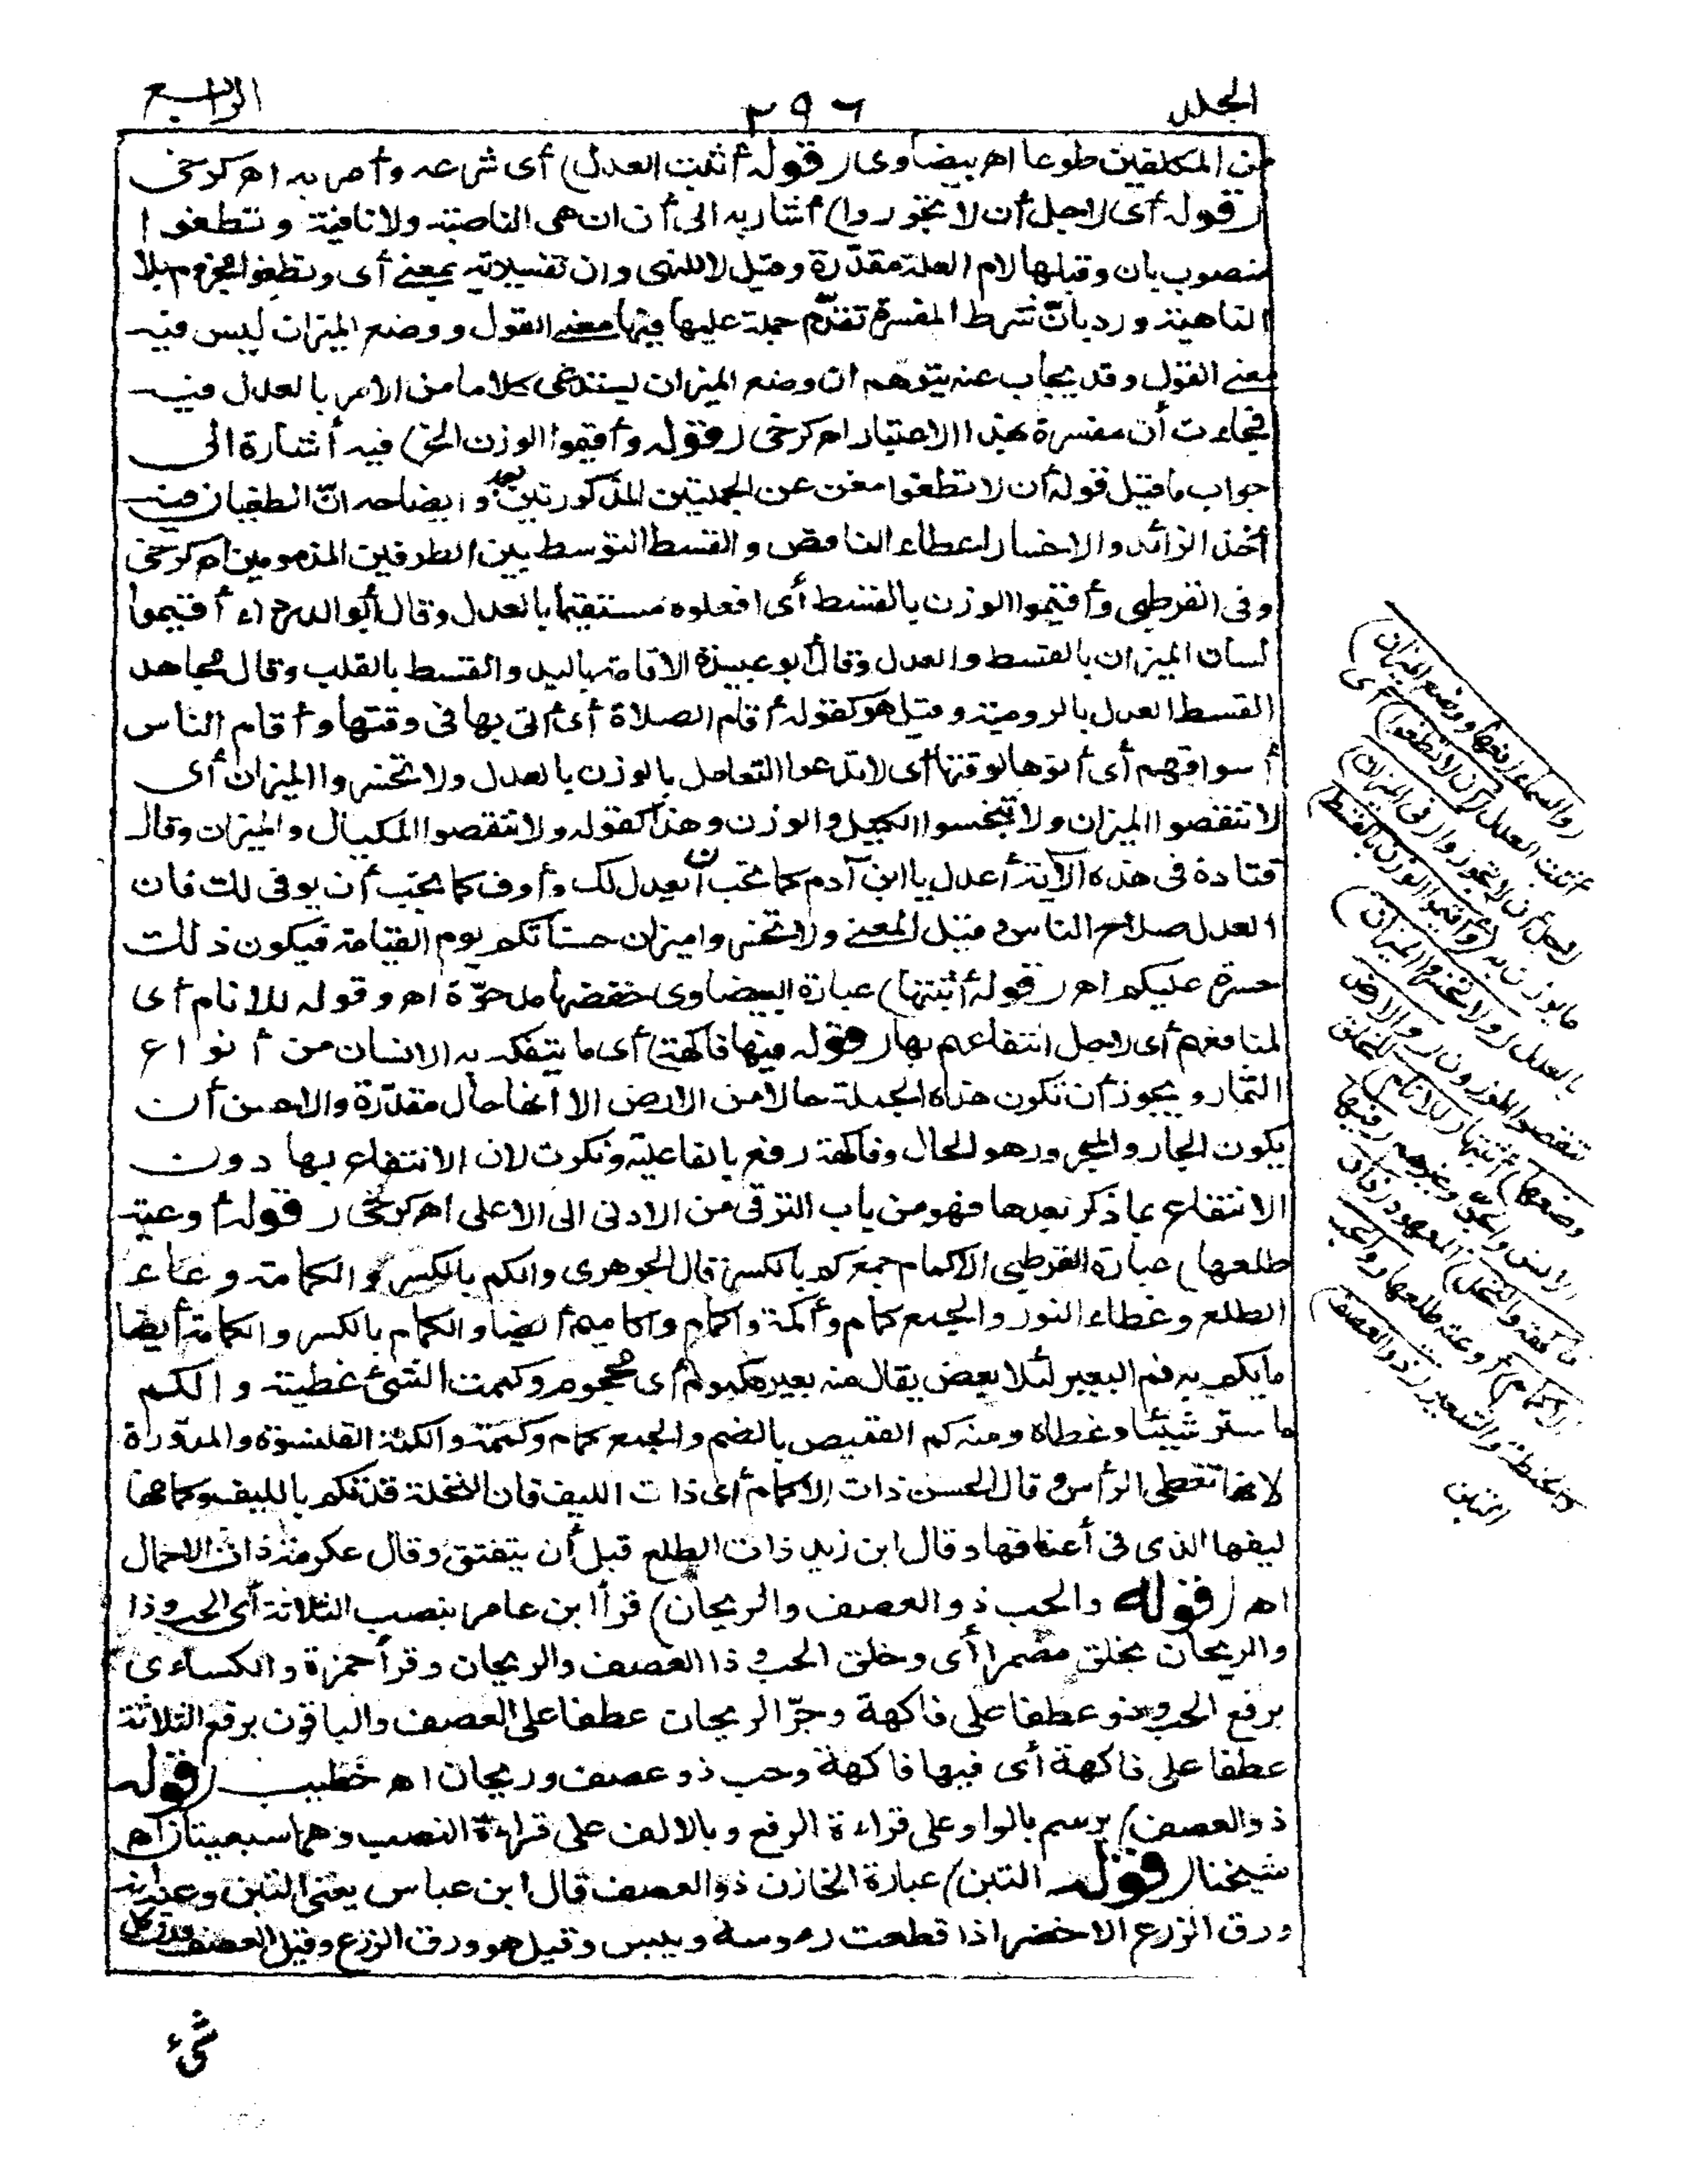 المجلد
٢٩٦
الرابع
من المكلفين طوعا اهر بيضاوى (قوله أثبت العدل) أى شرعه وأمر به اهر كرخى
(قوله أى لاجل أن لا تجوروا) أشار به الى أن ان هى الناصبة ولا نافية وتطغوا
منصوب بان وقبلها لام العلة مقدرة وقيل لا للنهى وان تفسيرية بمعنى أى وتطغوا مجزوم بلا
الناهية ورد بانّ شرط المفسرة تقدّم جملة عليها فيها معنى القول ووضع الميزان ليس فيه
معنى القول وقد يجاب عنه بتوهم ان وضع الميزان يستدعى كلاما من الامر بالعدل فيه
فجاءت أن مفسرة بهذا الاعتبار اهر كرخى (قوله وأقيموا الوزن الخ) فيه أشارة الى
جواب ما قيل قوله أن لا تطغوا مغن عن الجملتين المذكورتين بعد وايضاحه انّ الطغيان فيه
أخذ الزائد والاخسار اعطاء الناقص والقسط التوسط بين الطرفين المذمومين اهر كرخى
وفى القرطبى وأقيموا الوزن بالقسط أى افعلوه مستقيما بالعدل وقال أبو الدرداء أقيموا
لسان الميزان بالقسط والعدل وقال أبو عبيدة الاقامة باليد والقسط بالقلب وقال مجاهد
القسط العدل بالرومية وقيل هو كقوله أقام الصلاة أى أتى بها فى وقتها وأقام الناس
أسواقهم أى أتوها لوقتها أى لا تدعوا التعامل بالوزن بالعدل ولا تخسروا الميزان أى
لا تنقصوا الميزان ولا تبخسوا الكيل والوزن وهذا كقوله ولا تنقصوا المكيال والميزان وقال
قتادة فى هذه الآية أعدل يا ابن آدم كما تحب أن يعدل لك وأوف كما تحب أن يوفى لك فان
العدل صلاح الناس وقيل المعنى ولا تخسروا ميزان حسناتكم يوم القيامة فيكون ذلك
حسرة عليكم اهر (قوله أثبتها) عبارة البيضاوى خفضها مدحوّة اهر وقوله للانام أى
لمنافعهم أى لاجل انتفاعهم بها (قوله فيها فاكهة) أى ما يتفكه به الانسان من أنواع
الثمار ويجوز أن تكون هذه الجملة حالا من الارض الا انها حال مقدّرة والاحسن أن
يكون الجار والمجرور هو الحال وفاكهة رفع بالفاعلية ونكرت لان الانتفاع بها دون
الانتفاع بما ذكر بعدها فهو من باب الترقى من الادنى الى الاعلى اهر كرخى (قوله أوعية
طلعها) عبارة القرطبى الاكمام جمع كم بالكسر قال الجوهرى والكم بالكسر والكمامة وعاء
الطلع وغطاء النور والجمع كمام وأكمة واكمام واكاميم أيضا والكمام بالكسر والكمامة أيضا
ما يكم به فم البعير لئلا يعض يقال منه بعير مكموم أى محجوم وكممت الشئ غطيته والكم
ما ستر شيئا وغطاه ومنه كم القميص بالضم والجمع كمام وكممة والكمة القلنسوة والمدوّرة
لانها تغطى الرأس وقال الحسن ذات الاكمام أى ذات الليف فان النخلة قد تكم بالليف وكمامها
ليفها الذى فى أعناقها وقال ابن زيد ذات الطلع قبل أن يتفتق وقال عكرمة ذات الاحمال
اهر (قوله والحب ذو العصف والريحان) قرأ ابن عامر بنصب الثلاثة أى الحب وذا
والريحان بخلق مضمرا أى وخلق الحب وذا العصف والريحان وقرأ حمزة والكساءى
برفع الحب وذو عطفا على فاكهة وجرّ الريحان عطفا على العصف والباقون برفع الثلاثة
عطفا على فاكهة أى فيها فاكهة وحب ذو عصف وريحان اهر خطيب (قوله
ذو العصف) يرسم بالواو على قراءة الرفع وبالالف على قراءة النصب وهما سبعيتان اهر
شيخنا (قوله التبن) عبارة الخازن ذو العصف قال ابن عباس يعنى التبن وعنه انه
ورق الزرع الاخضر اذا قطعت رءوسه ويبس وقيل هو ورق الزرع وقيل العصف ورق كل
شىء
(والسماء رفعها ووضع الميزان)
أثبت العدل (أن لا تطغوا) أى
لاجل أن لا تجوروا (فى الميزان)
ما يوزن به (وأقيموا الوزن بالقسط)
بالعدل (ولا تخسروا الميزان)
تنقصوا الموزون (والارض
وضعها) أثبتها (للانام) للخلق
الانس والجن وغيرهم (فيها
فاكهة والنخل) المعهود (ذات
الاكمام) أوعية طلعها (والحب)
كالحنطة والشعير (ذو العصف)
التبن